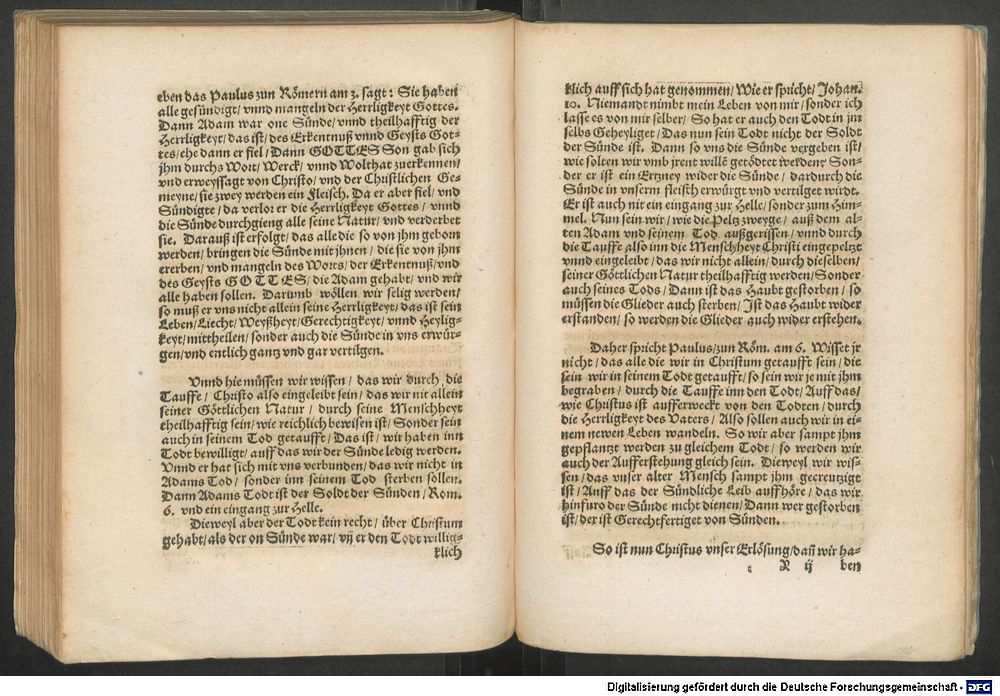 eben das Paulus zun Römern am 3. sagt: Sie haben
alle gesündigt/ vnnd mangeln der Herrligkeyt Gottes.
Dann Adam war one Sünde/ vnnd theilhafftig der
Herrligkeyt/ das ist/ des Erkentnuß vnnd Geysts Got-
tes/ ehe dann er fiel/ Dann GOTTES Son gab sich
jhm durchs Wort/ Werck/ vnnd Wolthat zuerkennen/
vnd erweyssagt von Christo/ vnd der Christlichen Ge-
meyne/ sie zwey werden ein Fleisch. Da er aber fiel/ vnd
Sündigte/ da verlor er die Herrligkeyt Gottes/ vnnd
die Sünde durchgieng alle seine Natur/ vnd verderbet
sie. Darauß ist erfolgt/ das alle die so von jhm geborn
werden/ bringen die Sünde mit jhnen/ die sie von jhm
ererben/ vnd mangeln des Worts/ der Erkentnuß/ vnd
des Geysts GOTTES/ die Adam gehabt/ vnd wir
alle haben sollen. Darumb wöllen wir selig werden/
so muß er vns nicht allein seine Herrligkeyt/ das ist sein
Leben/ Liecht/ Weyßheyt/ Gerechtigkeyt/ vnnd Heylig-
keyt/ mittheilen/ sonder auch die Sünde in vns erwür-
gen/ vnd entlich gantz vnd gar vertilgen.
Vnnd hie müssen wir wissen/ das wir durch die
Tauffe/ Christo also eingeleibt sein/ das wir nit allein
seiner Göttlichen Natur/ durch seine Menschheyt
theilhafftig sein/ wie reichlich bewisen ist/ Sonder sein
auch in seinem Tod getaufft/ Das ist/ wir haben inn
Todt bewilligt/ auff das wir der Sünde ledig werden.
Vnnd er hat sich mit vns verbunden/ das wir nicht in
Adams Tod/ sonder inn seinem Tod sterben söllen.
Dann Adams Todt ist der Soldt der Sünden/ Rom.
6. vnd ein eingang zur Helle.
Dieweyl aber der Todt kein recht/ über Christum
gehabt/ als der on Sünde war/ vñ er den Todt willig-
klich
klich auff sich hat genommen/ Wie er spricht/ Johan.
10. Niemandt nimbt mein Leben von mir/ sonder ich
lasse es von mir selber/ So hat er auch den Todt in jm
selbs Geheyliget/ Das nun sein Todt nicht der Soldt
der Sünde ist. Dann so vns die Sünde vergeben ist/
wie solten wir vmb jrent willē getödtet werden? Son-
der er ist ein Ertzney wider die Sünde/ dardurch die
Sünde in vnserm fleisch erwürgt vnd vertilget wirdt.
Er ist auch nit ein eingang zur Helle/ sonder zum Him-
mel. Nun sein wir/ wie die Peltz zweyge/ auß dem al-
ten Adam vnd seinem Tod außgerissen/ vnnd durch
die Tauffe also inn die Menschheyt Christi eingepeltzt
vnnd eingeleibt/ das wir nicht allein/ durch dieselben/
seiner Göttlichen Natur theilhafftig werden/ Sonder
auch seines Tods/ Dann ist das Haubt gestorben/ so
müssen die Glieder auch sterben/ Ist das Haubt wider
erstanden/ so werden die Glieder auch wider erstehen.
Daher spricht Paulus/ zun Röm. am 6. Wisset jr
nicht/ das alle die wir in Christum getaufft sein/ die
sein wir in seinem Todt getaufft/ so sein wir je mit jhm
begraben/ durch die Tauffe inn den Todt/ Auff das/
wie Christus ist aufferweckt von den Todten/ durch
die Herrligkeyt des Vaters/ Also sollen auch wir in ei-
nem newen Leben wandeln. So wir aber sampt jhm
gepflantzt werden zu gleichem Todt/ so werden wir
auch der Aufferstehung gleich sein. Dieweyl wir wis-
sen/ das vnser alter Mensch sampt jhm gecreutzigt
ist/ Auff das der Sündliche Leib auffhöre/ das wir
hinfuro der Sünde nicht dienen/ Dann wer gestorben
ist/ der ist Gerechtfertiget von Sünden.
So ist nun Christus vnser Erlösung/ dañ wir ha-
R ij ben
Digitalisierung gefördert durch die Deutsche Forschungsgemeinschaft - DFG